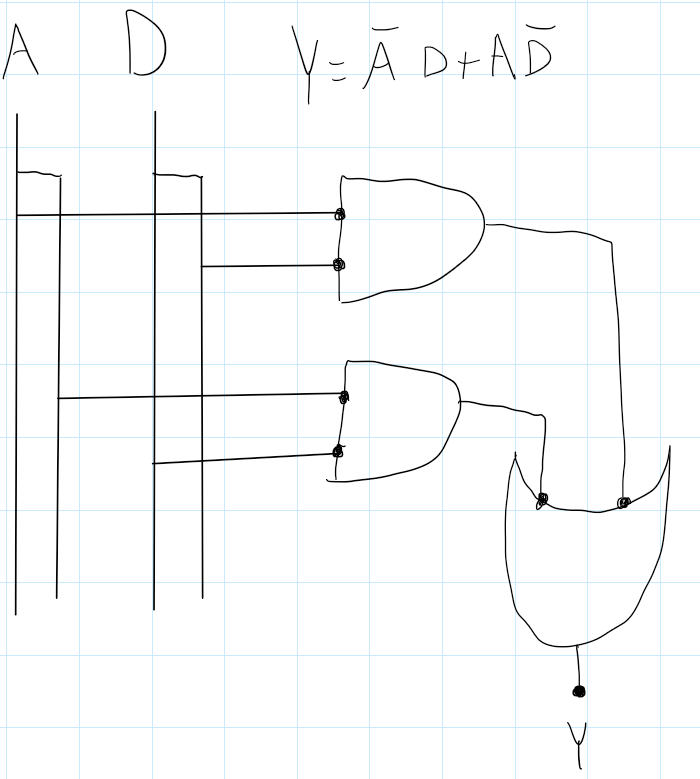 A D Y = A̅ D + A D̅
Y